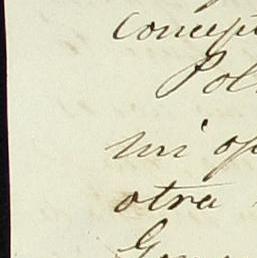 concep
Pol
mi op
otra